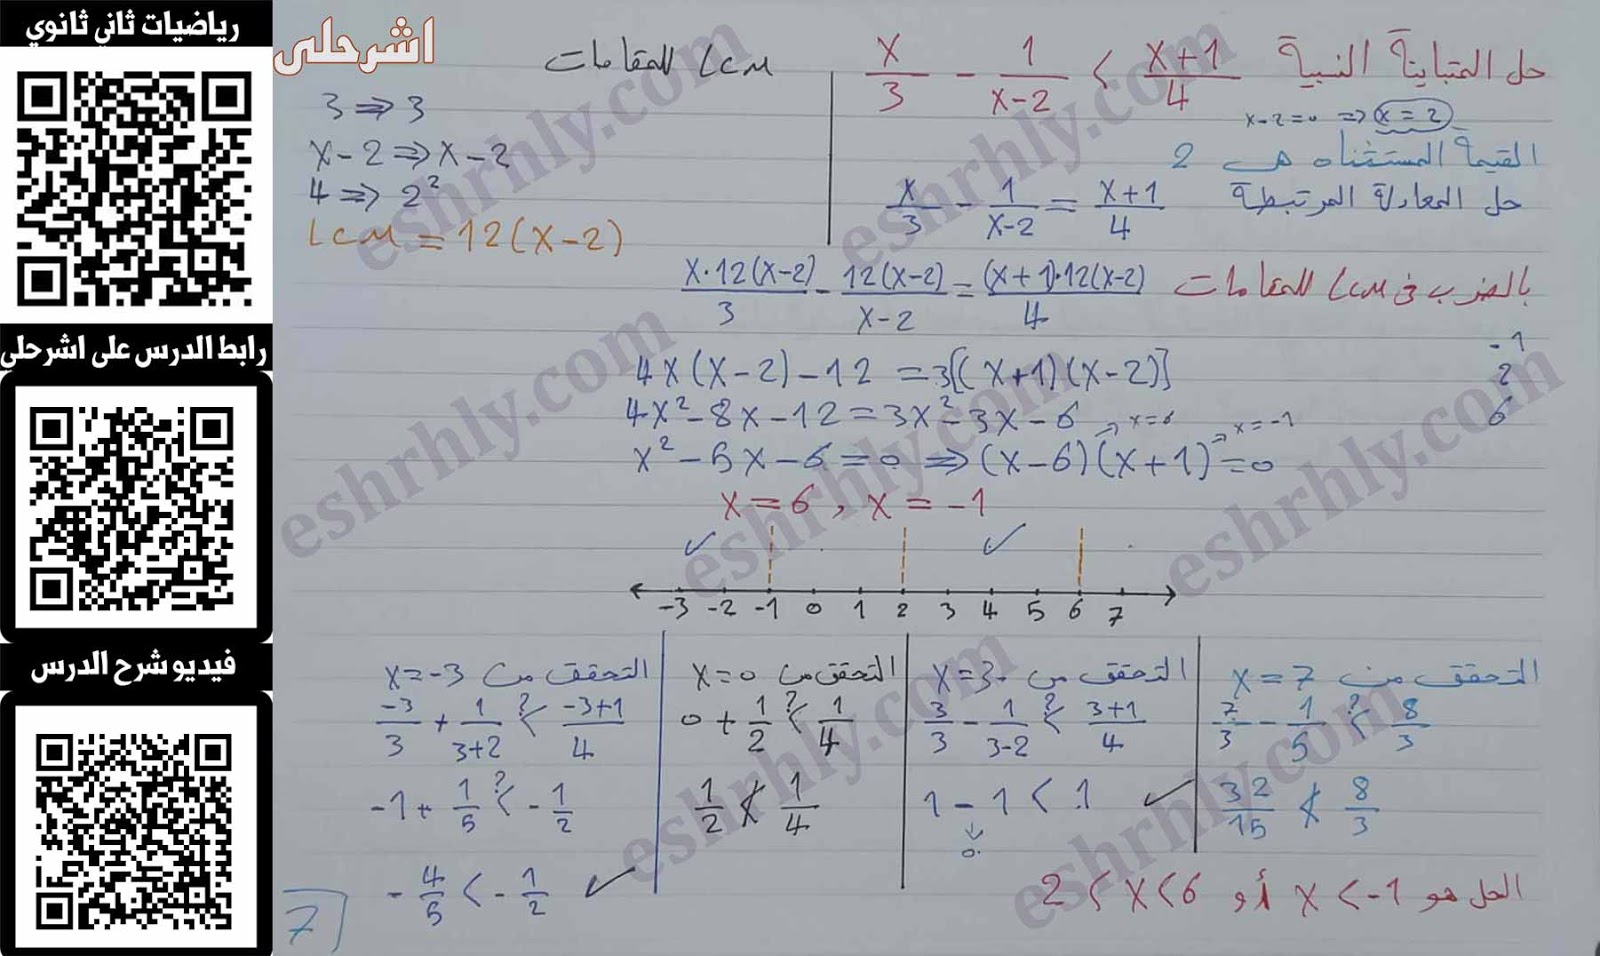 رياضيات ثاني ثانوي
رابط الدرس على اشرحلى
فيديو شرح الدرس
اشرحلى
حل المتباينة النسبية x/3 - 1/(x-2) < (x+1)/4
x-2=0 ⇒ x=2
القيمة المستثناه هى 2
حل المعادلة المرتبطة x/3 - 1/(x-2) = (x+1)/4
LCM للمقامات
3 ⇒ 3
x-2 ⇒ x-2
4 ⇒ 2²
LCM = 12(x-2)
بالضرب فى LCM للمقامات x·12(x-2)/3 - 12(x-2)/(x-2) = (x+1)·12(x-2)/4
4x(x-2)-12 = 3[(x+1)(x-2)]
4x²-8x-12=3x²-3x-6
x²-5x-6=0 ⇒ (x-6)(x+1)=0
→ x=6 → x=-1
x=6 , x=-1
-1
2
6
✓ ✓
-3 -2 -1 0 1 2 3 4 5 6 7
التحقق من x=-3
-3/3 + 1/(3+2) <? (-3+1)/4
-1 + 1/5 <? -1/2
-4/5 < -1/2 ✓
التحقق من x=0
0 + 1/2 <? 1/4
1/2 ≮ 1/4
التحقق من x=3
3/3 - 1/(3-2) <? (3+1)/4
1-1<1 ✓
0
التحقق من x=7
7/3 - 1/5 <? 8/3
32/15 ≮ 8/3
الحل هو x<-1 أو 2<x<6
7
eshrhly.com
eshrhly.com
eshrhly.com
eshrhly.com
eshrhly.com
eshrhly.com
eshrhly.com